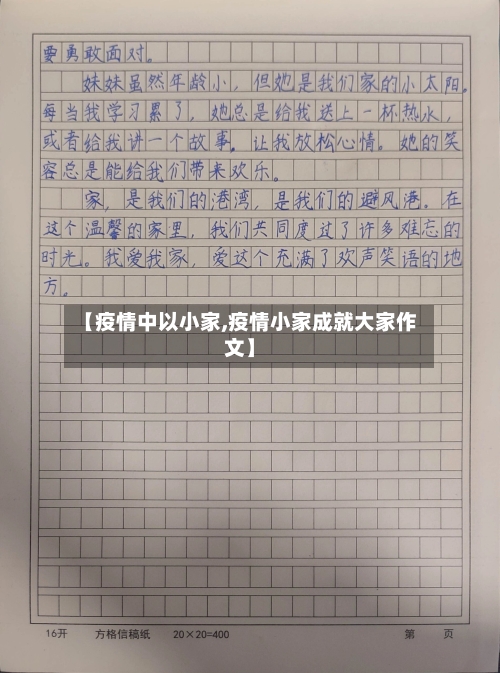 要勇敢面对。
妹妹虽然年龄小，但她是我们家的小太阳。
每当我学习累了，她总是给我送上一杯热水，
或者给我讲一个故事，让我放松心情。她的笑
容总是能给我们带来欢乐。
家，是我们的港湾，是我们的避风港。在
这个温馨的家里，我们共同度过了许多难忘的
时光。我爱我家，爱这个充满了欢声笑语的地
方。
【疫情中以小家,疫情小家成就大家作
文】
16开 方格信稿纸 20×20=400 第 页